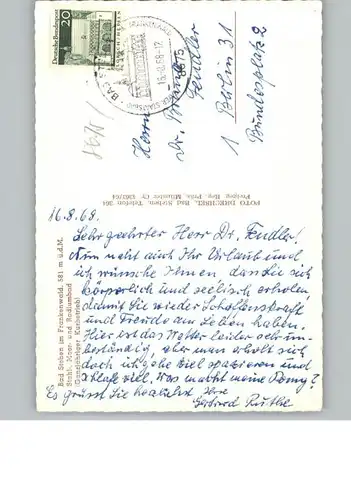 Deutsche Bundespost
20
16.-8.68-12
8675
Herrn
Dr. Bruno
Fendler
1 Berlin 31
Bundesplatz 2
8675 /
FOTO DRECHSEL, Bad Steben, Telefon 364
Bad Steben im Frankenwald, 581 m ü.d.M.
Stahl-, Moor- und Radiumbad
(Ganzjähriger Kurbetrieb)
16.8.68.
Sehr geehrter Herr Dr. Fendler!
Nun naht auch Ihr Urlaub und
ich wünsche Ihnen dass Sie sich
körperlich und seelisch erholen
damit Sie wieder Schaffenskraft
und Freude am Leben haben.
Hier ist das Wetter leider sehr un-
beständig, aber man erholt sich
doch ich gehe viel spazieren und
schlafe viel. Was macht meine
Es grüsst Sie herzlichst Ihre
Gertrud Ruthe